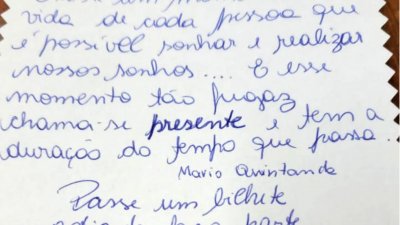 vida de cada pessoa que
é possível sonhar e realizar
nossos sonhos.... E esse
momento tão fugaz
chama-se presente e tem a
duração do tempo que passa.
Mario Quintande
Passe um bilhete